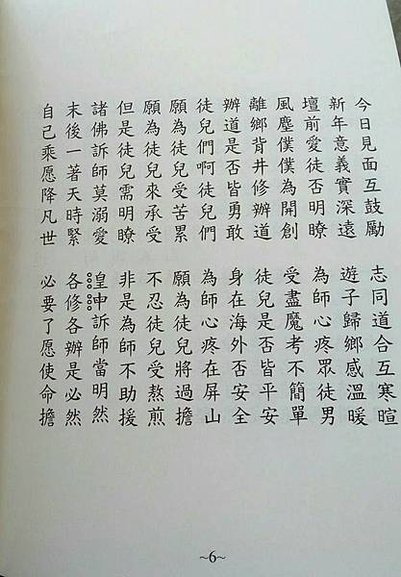 今日見面互鼓勵　志同道合互寒暄
新年意義實深遠　遊子歸鄉感溫暖
壇前愛徒否明瞭　為師心疼眾徒男
風塵僕僕為開創　受盡魔考不簡單
離鄉背井修辦道　徒兒是否皆平安
辦道是否皆勇敢　身在海外否安全
徒兒們啊徒兒們　為師心疼在屏山
願為徒兒受苦累　願為徒兒將過擔
願為徒兒來承受　不忍徒兒受熬煎
但是徒兒需明瞭　非是為師不助援
諸佛訴師莫溺愛　皇中訴師當明然
末後一著天時緊　各修各辦是必然
自己乘愿降凡世　必要了愿使命擔
~6~